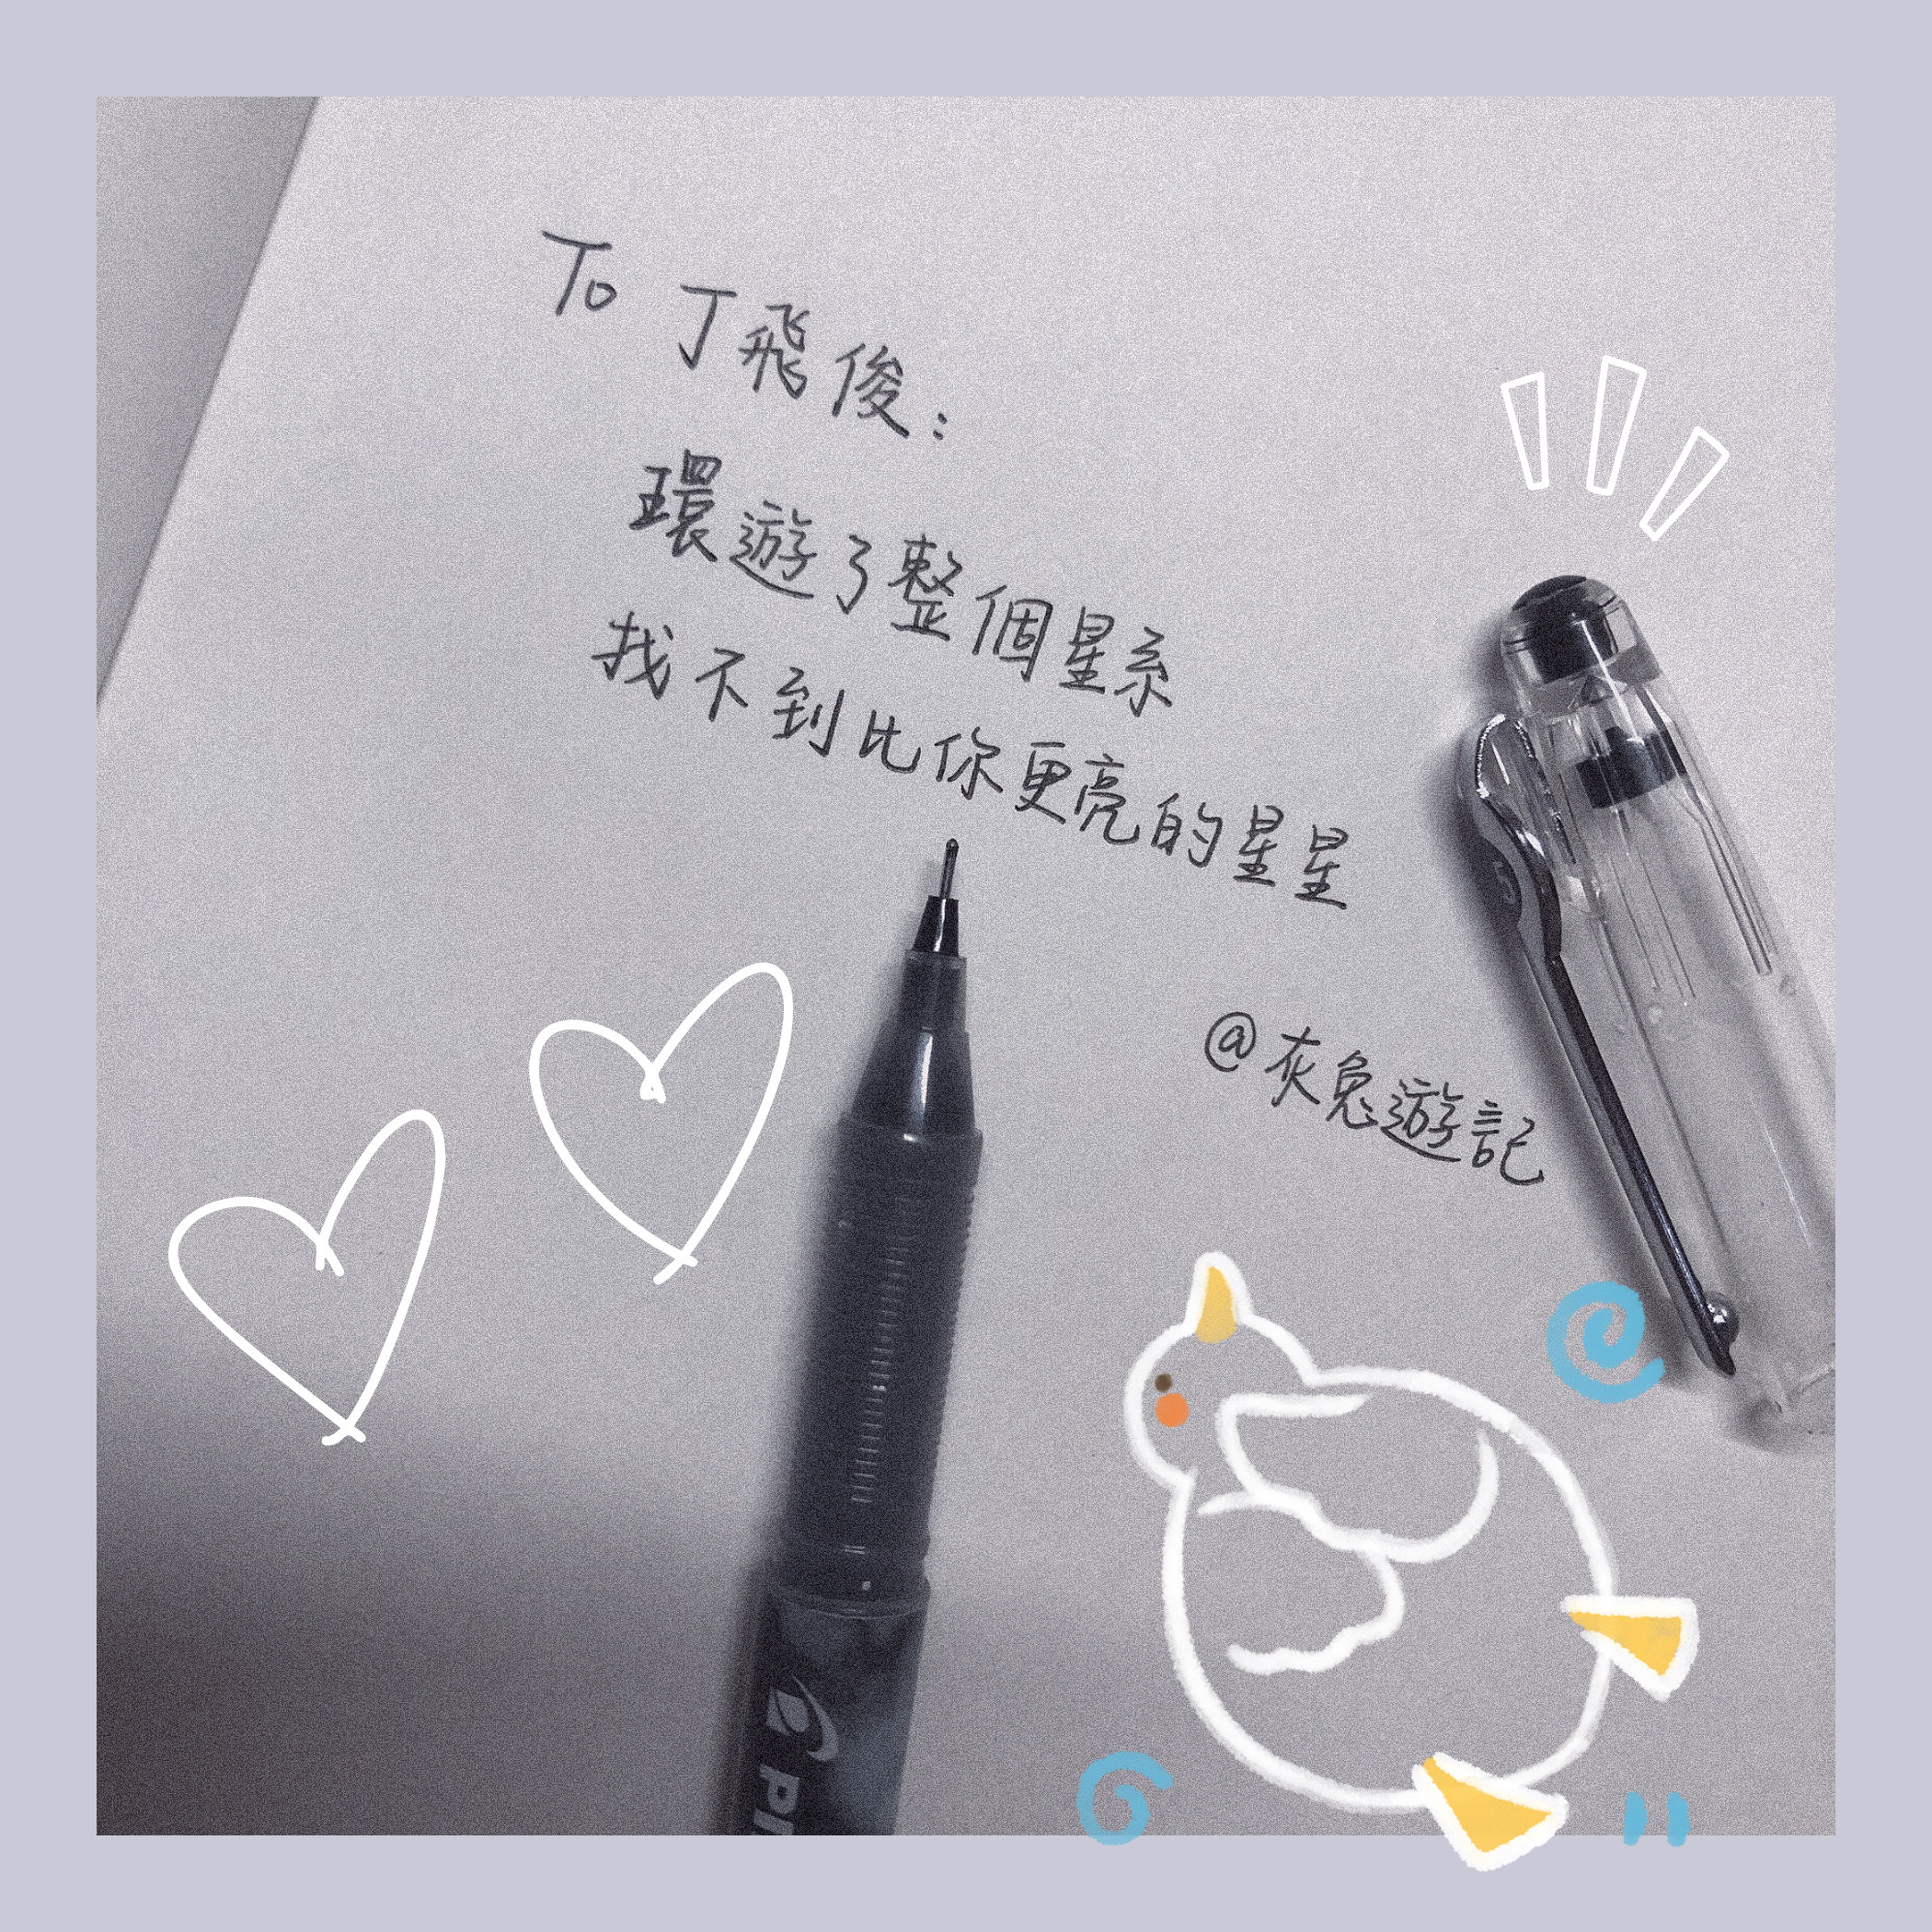 To 丁飛俊：
環遊了整個星系
找不到比你更亮的星星
@灰兔遊記